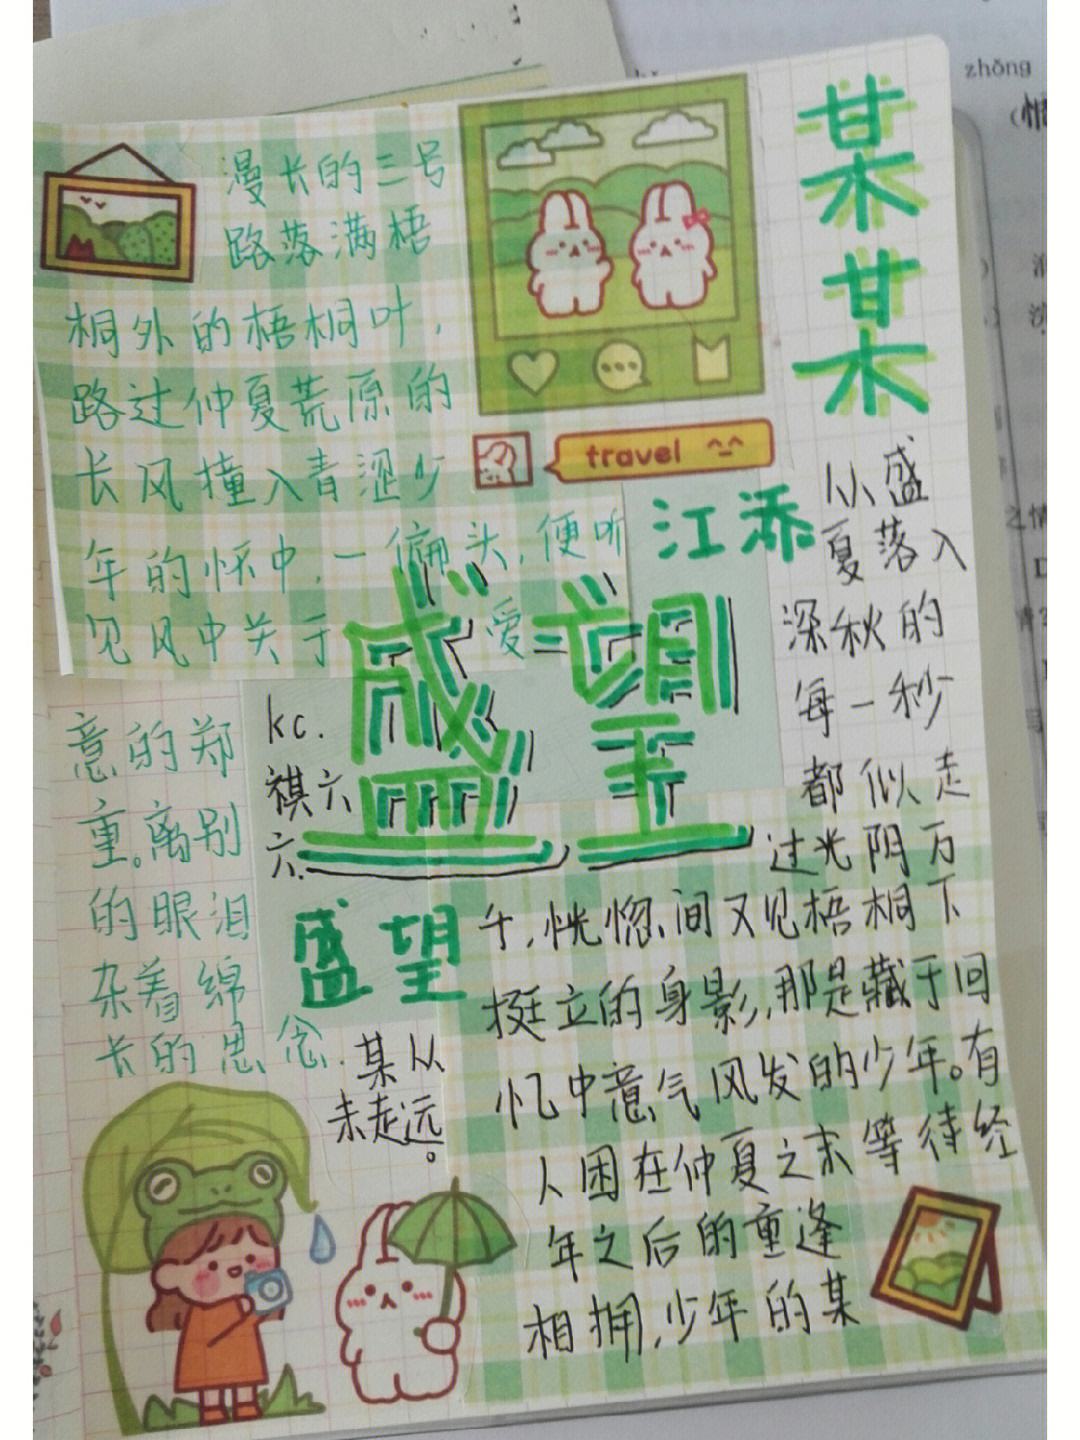 zhǒng
某
某
漫长的三号
路落满梧
桐外的梧桐叶，
路过仲夏荒原的
长风撞入青涩少
年的怀中，一偏头，便听
见风中关于爱
意的郑
重。离别
的眼泪
杂着绵
长的思念.
travel ^-^
江添
盛望
kc.
祺六
六.
盛望
小盛
夏落入
深秋的
每一秒
都似走
过光阴万
千，恍惚间又见梧桐下
挺立的身影，那是藏于回
忆中意气风发的少年。有
人困在仲夏之末等待经
年之后的重逢
相拥，少年的某
某从
未走远。